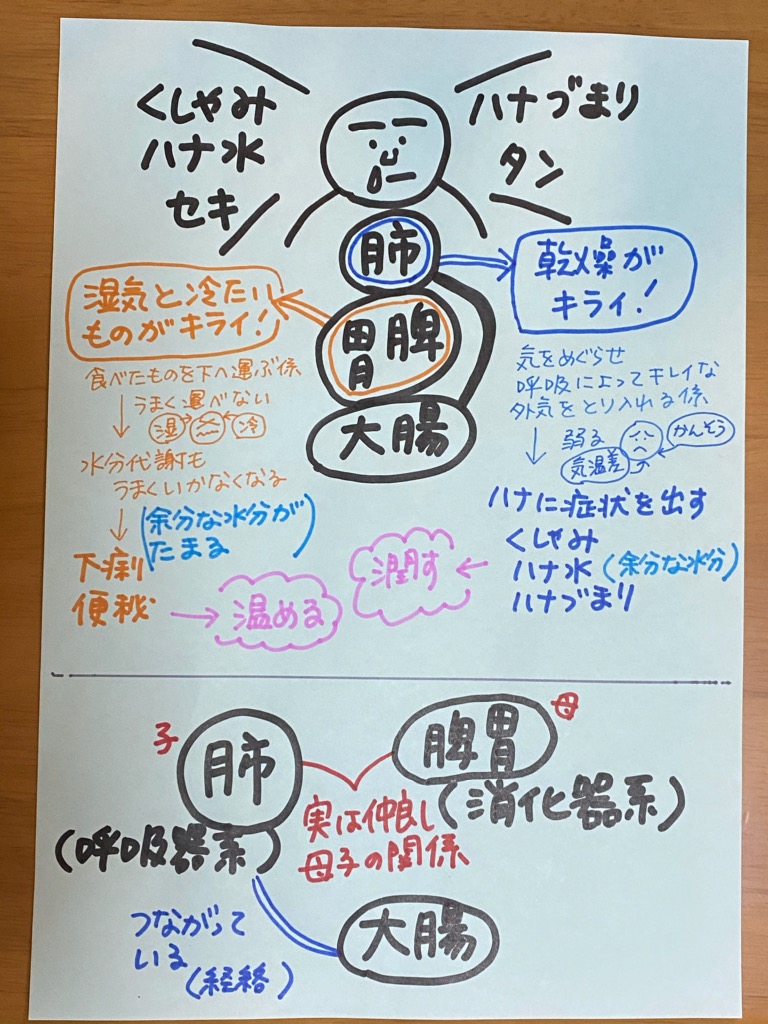 くしゃみ
ハナ水
セキ
ハナづまり
タン
肺
胃脾
大腸
湿気と冷たい
ものがキライ!
食べたものを下へ運ぶ係
うまく運べない
湿 冷
水分代謝も
うまくいかなくなる
(余分な水分が
たまる)
下痢
便秘
温める
乾燥が
キライ!
気をめぐらせ
呼吸によってキレイな
外気をとり入れる係
弱る
気温差
かんそう
ハナに症状を出す
くしゃみ
ハナ水(余分な水分)
ハナづまり
潤す
子
肺
(呼吸器系)
母
脾胃
(消化器系)
実は仲良し
母子の関係
大腸
つながって
いる
(経絡)